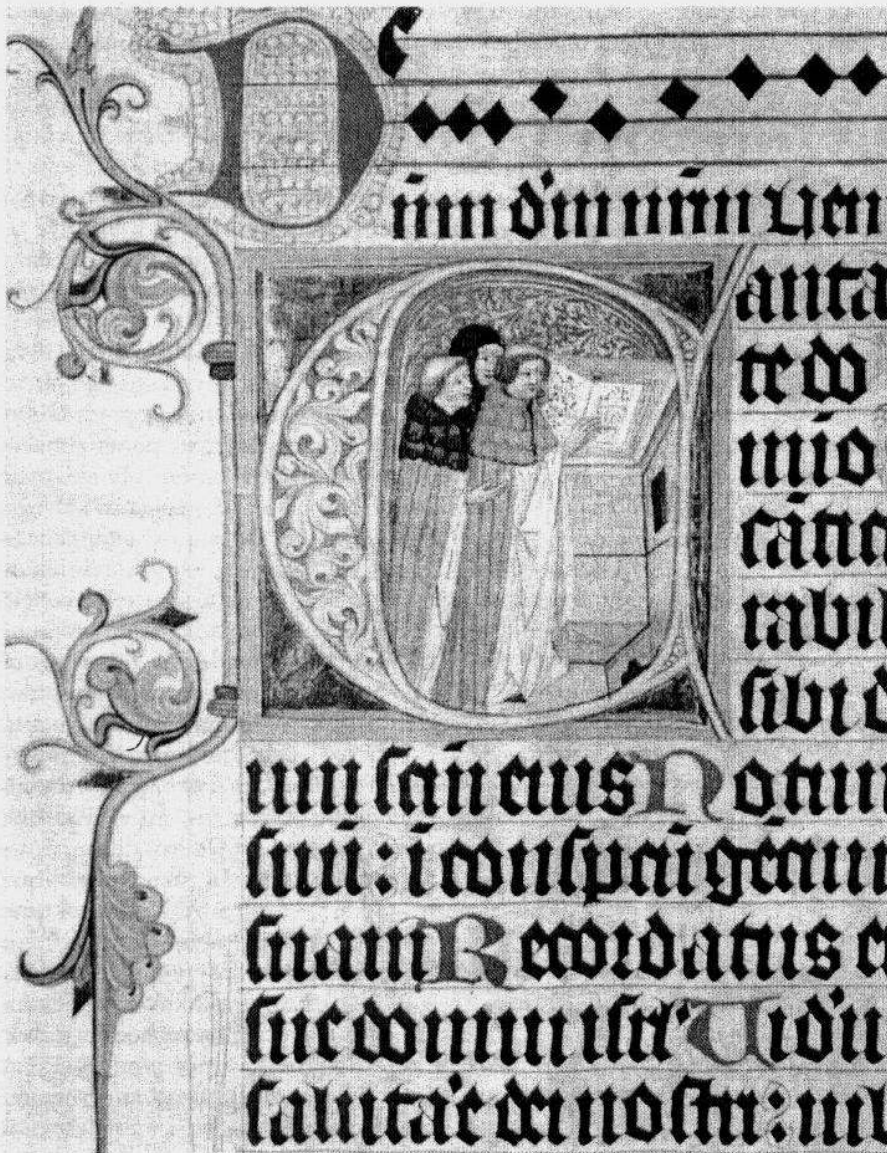 D n̄m dm̄ nr̄m Ven
C anta
te do
mio
cātic
rabil
sibi d
um scm̄ eius Notum
suū: ī conspcū gētium
suam Recordatus e
sue domui isrl̄ Vidū
salutar̄e dei nostri: iub